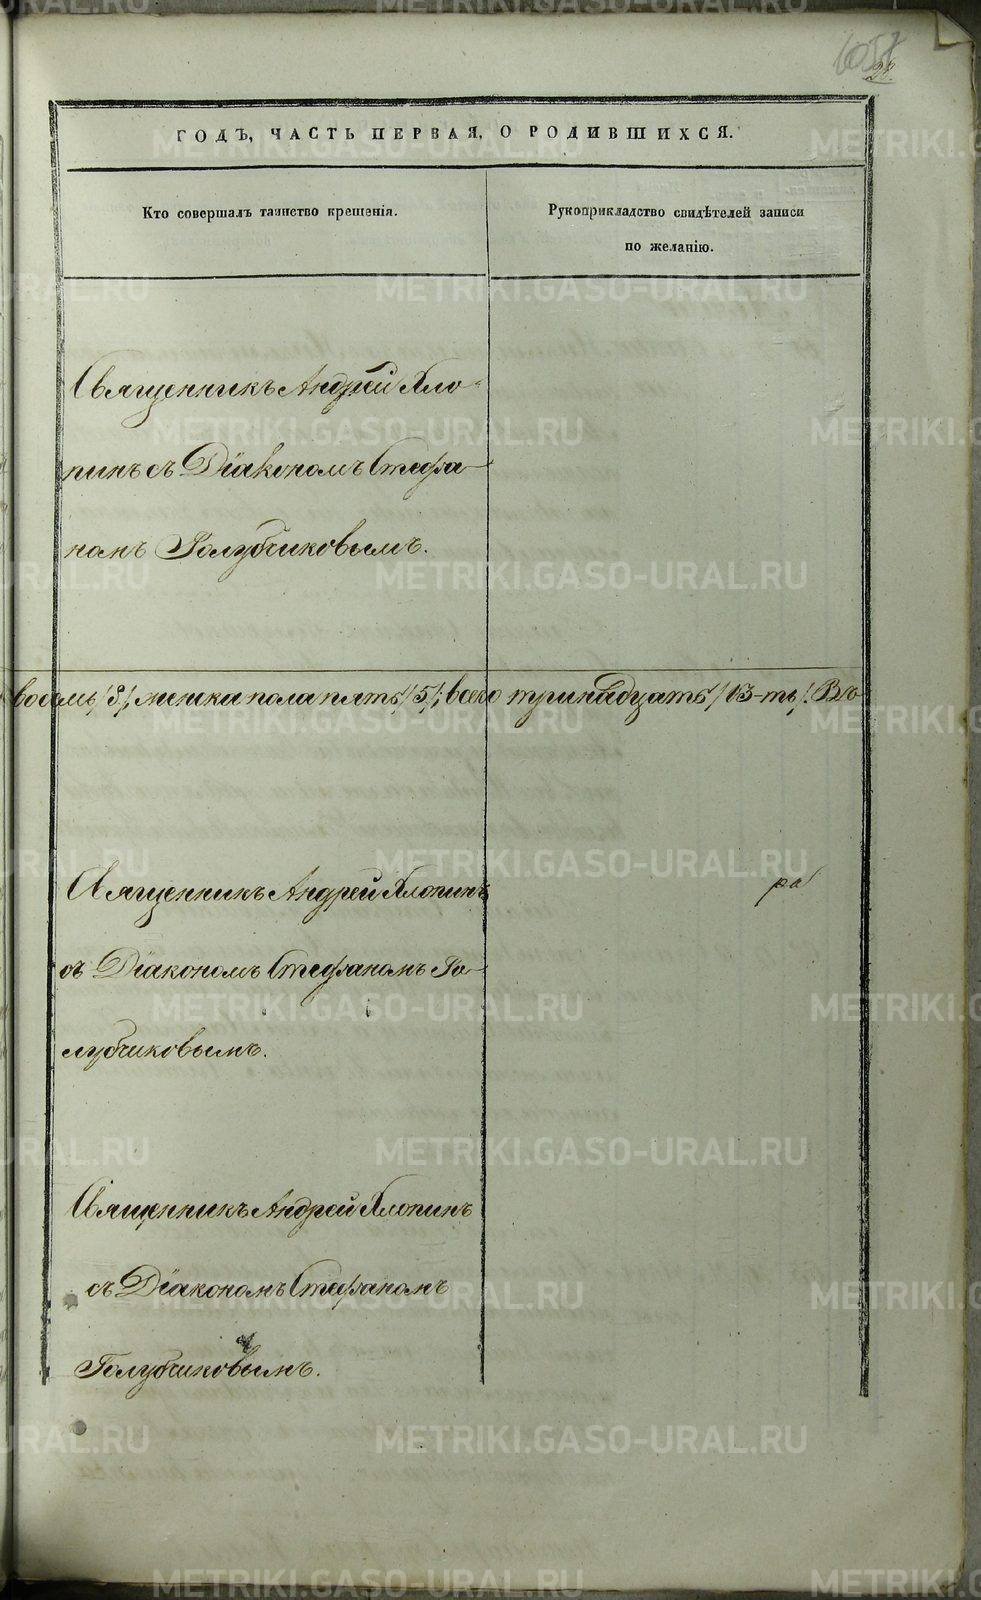 28.
ГОДЪ, ЧАСТЬ ПЕРВАЯ, О РОДИВШИХСЯ.
Кто совершалъ таинство крещенія.
Рукоприкладство свидѣтелей записи
по желанію.
Священникъ Андрей Хло-
пинъ съ Діакономъ Стефа-
номъ Голубчиковымъ.
восемь /8/, женска пола пять /5/; всего тринадцать /13-ть/. Въ
Священникъ Андрей Хлопинъ
съ Діакономъ Стефаномъ Го-
лубчиковымъ.
Священникъ Андрей Хлопинъ
съ Діакономъ Стефаномъ
Голубчиковымъ.
METRIKI.GASO-URAL.RU